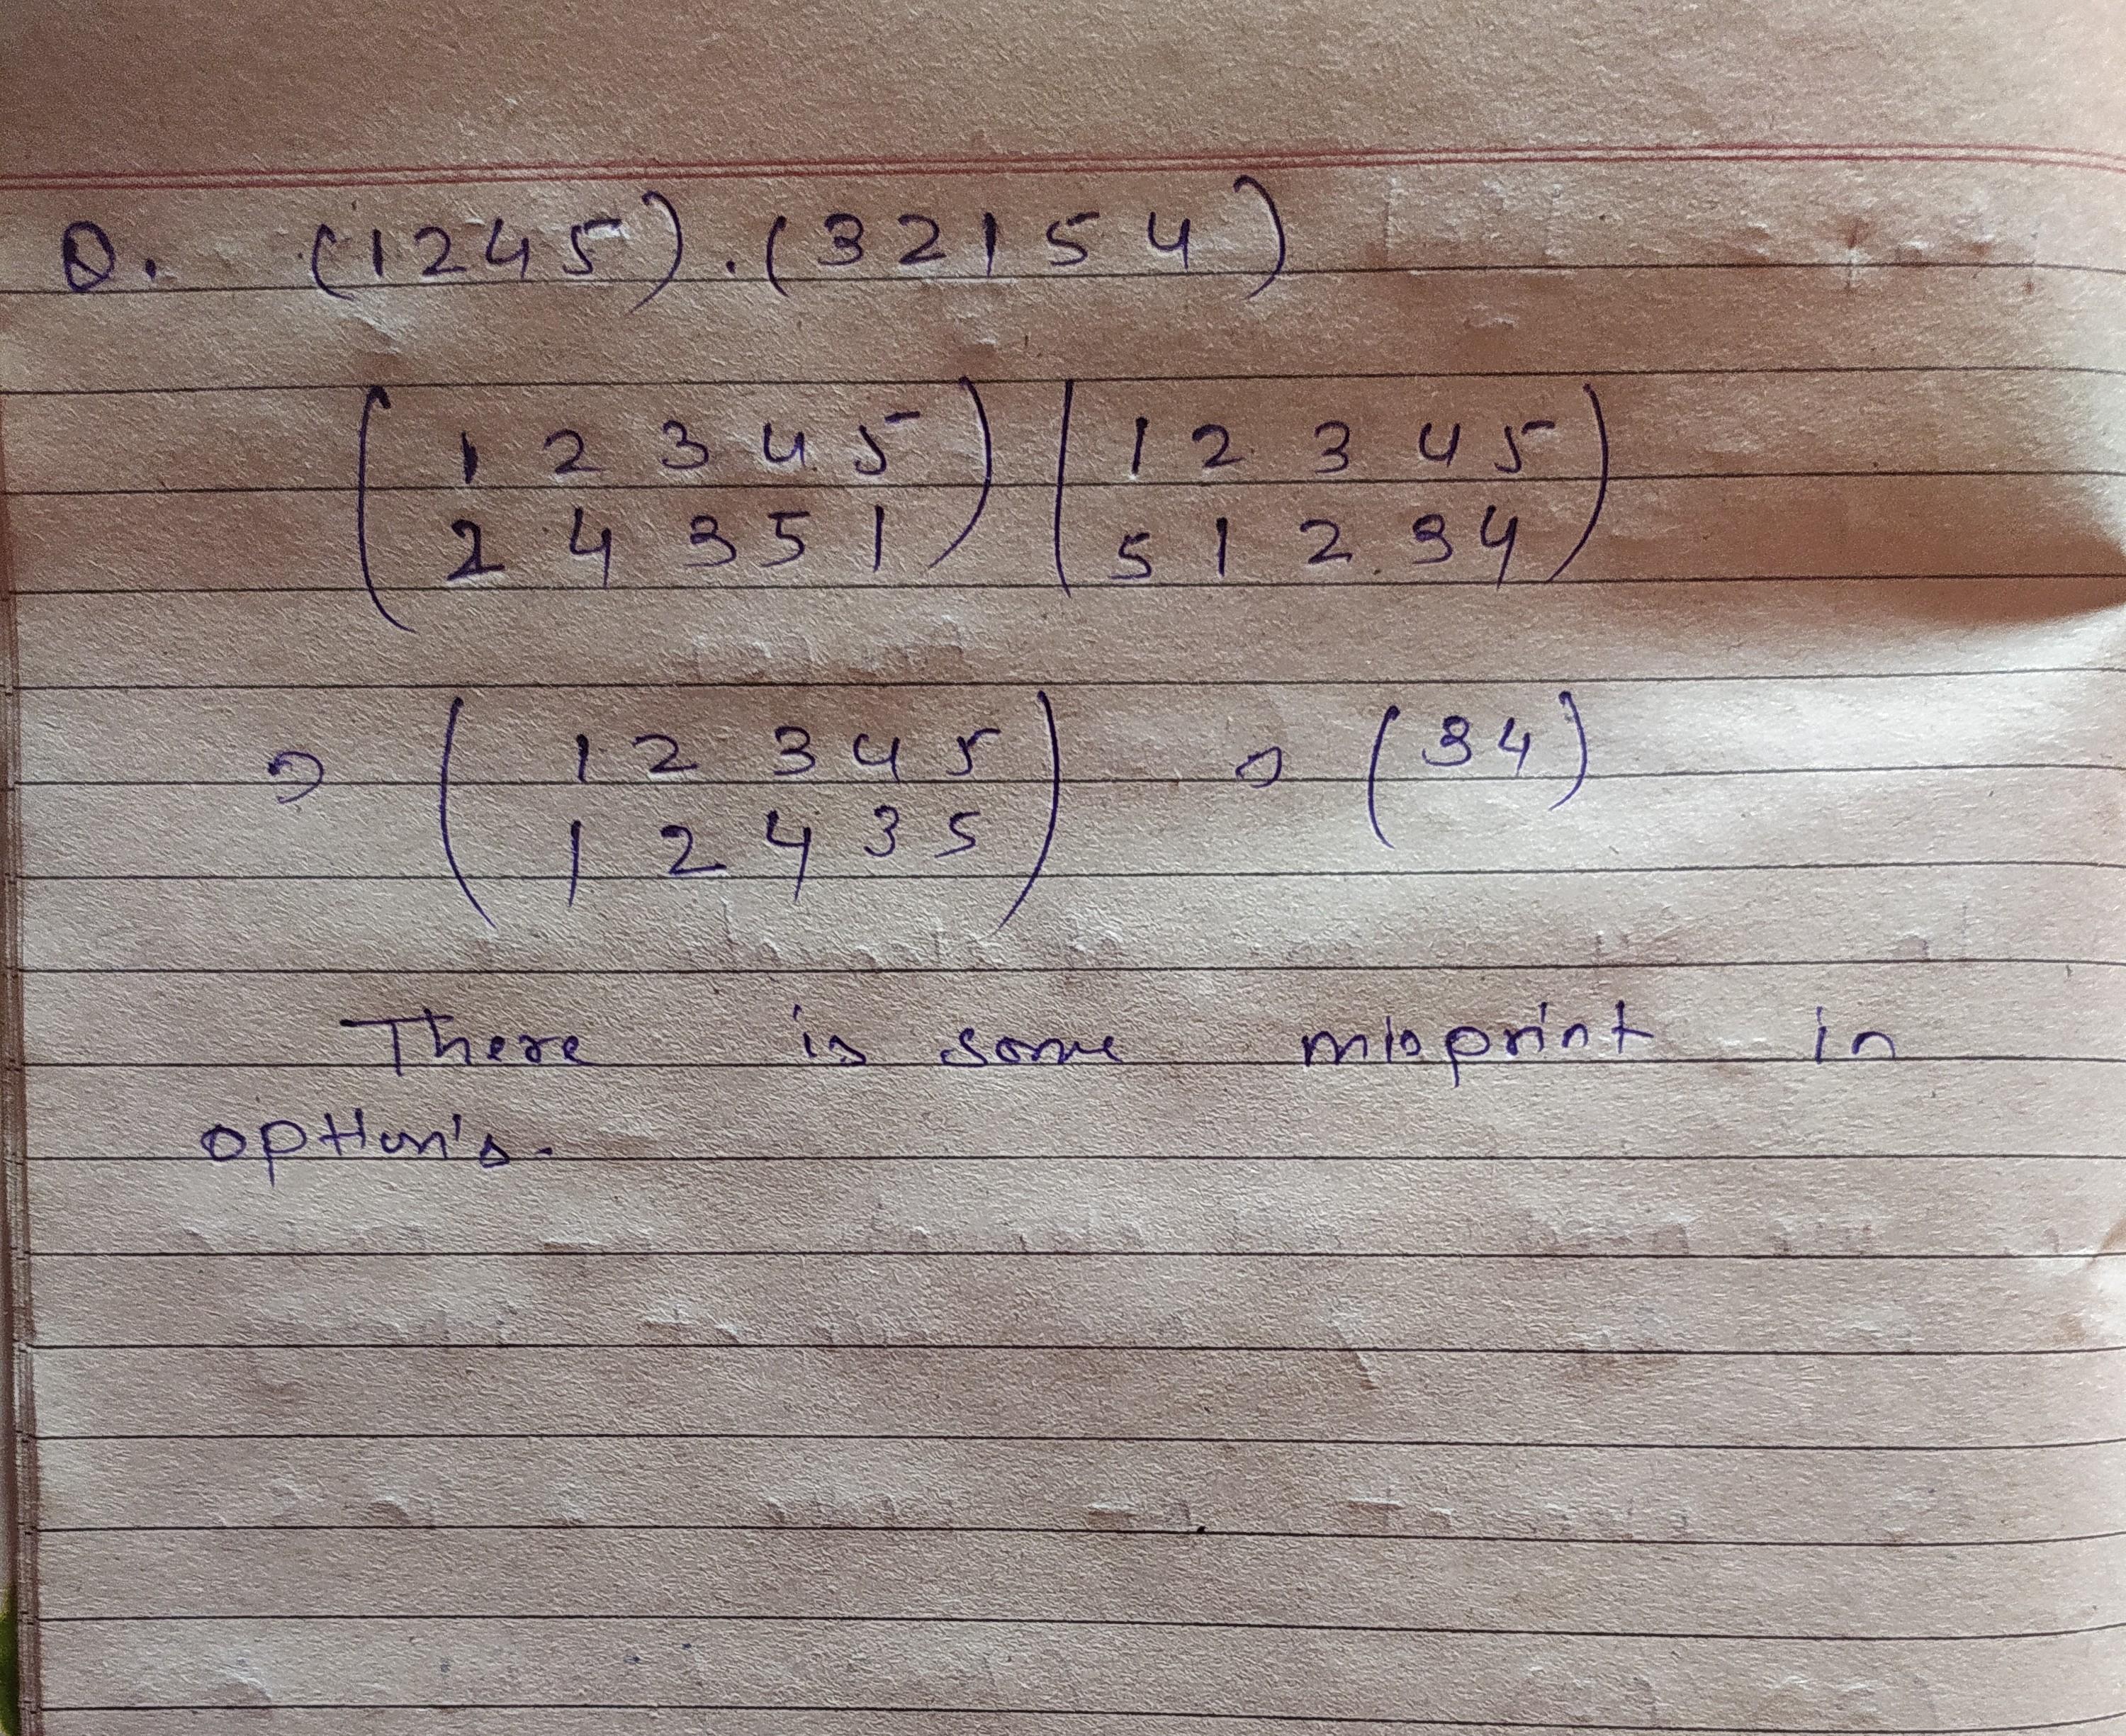 Q. (1245).(32154)
( 1 2 3 4 5 ) ( 1 2 3 4 5 )
( 2 4 3 5 1 ) ( 5 1 2 3 4 )
⇒ ( 1 2 3 4 5 ) ⇒ (34)
( 1 2 4 3 5 )
There is some misprint in
option's.